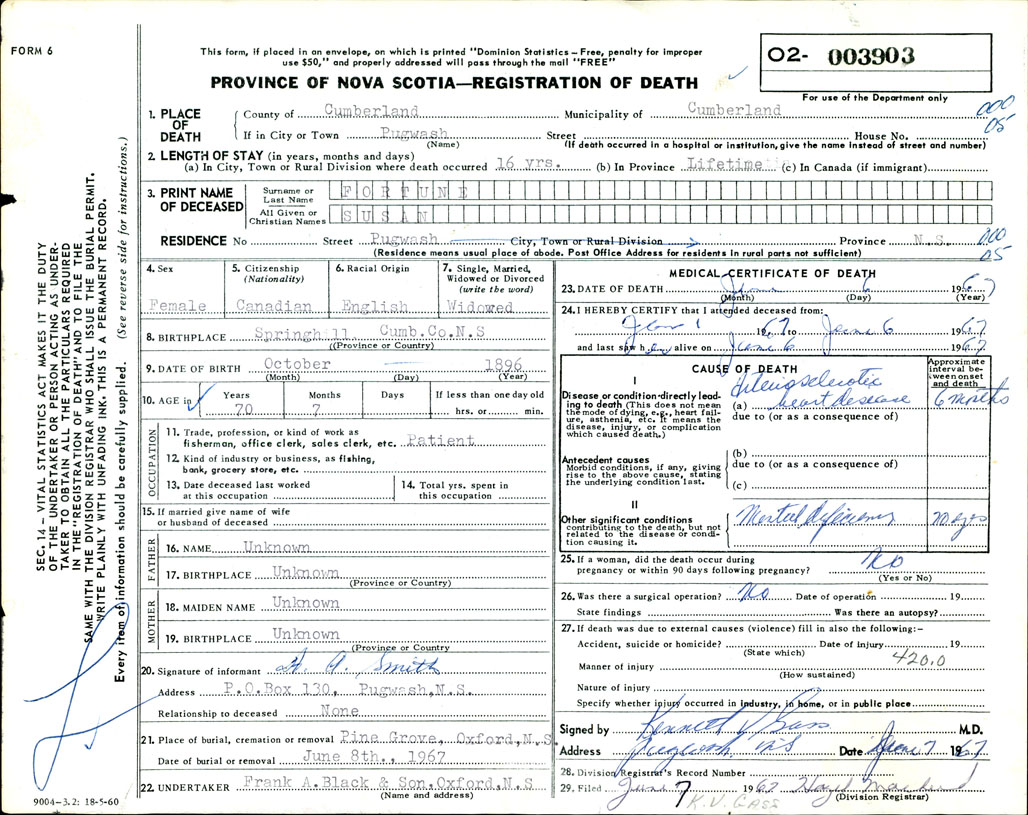 FORM 6
This form, if placed in an envelope, on which is printed "Dominion Statistics – Free, penalty for improper
use $50," and properly addressed will pass through the mail "FREE"
PROVINCE OF NOVA SCOTIA—REGISTRATION OF DEATH
02- 003903
For use of the Department only
SEC. 14 – VITAL STATISTICS ACT MAKES IT THE DUTY
OF THE UNDERTAKER OR PERSON ACTING AS UNDER-
TAKER TO OBTAIN ALL THE PARTICULARS REQUIRED
IN THE "REGISTRATION OF DEATH" AND TO FILE THE
SAME WITH THE DIVISION REGISTRAR WHO SHALL ISSUE THE BURIAL PERMIT.
WRITE PLAINLY WITH UNFADING INK. THIS IS A PERMANENT RECORD.
Every item of information should be carefully supplied. (See reverse side for instructions.)
1. PLACE OF DEATH
County of Cumberland Municipality of Cumberland 000
If in City or Town Pugwash Street House No. 05
(Name) (If death occurred in a hospital or institution, give the name instead of street and number)
2. LENGTH OF STAY (in years, months and days)
(a) In City, Town or Rural Division where death occurred 16 yrs. (b) In Province Lifetime (c) In Canada (if immigrant)
3. PRINT NAME OF DECEASED
Surname or Last Name FORTUNE
All Given or Christian Names SUSAN
RESIDENCE No Street Pugwash City, Town or Rural Division Province N.S. 000
(Residence means usual place of abode. Post Office Address for residents in rural parts not sufficient) 05
4. Sex
Female
5. Citizenship
(Nationality)
Canadian
6. Racial Origin
English
7. Single, Married,
Widowed or Divorced
(write the word)
Widowed
8. BIRTHPLACE Springhill Cumb.Co.N.S
(Province or Country)
9. DATE OF BIRTH October 1896
(Month) (Day) (Year)
10. AGE in Years Months Days If less than one day old
70 7 hrs. or min.
OCCUPATION
11. Trade, profession, or kind of work as
fisherman, office clerk, sales clerk, etc. Patient
12. Kind of industry or business, as fishing,
bank, grocery store, etc.
13. Date deceased last worked
at this occupation
14. Total yrs. spent in
this occupation
15. If married give name of wife
or husband of deceased
FATHER
16. NAME Unknown
17. BIRTHPLACE Unknown
(Province or Country)
MOTHER
18. MAIDEN NAME Unknown
19. BIRTHPLACE Unknown
(Province or Country)
20. Signature of informant A. Smith
Address P.O.Box 130, Pugwash,N.S.
Relationship to deceased None
21. Place of burial, cremation or removal Pine Grove, Oxford,N.S
Date of burial or removal June 8th., 1967
22. UNDERTAKER Frank A.Black & Son.Oxford,N.S
(Name and address)
9004–3.2: 18-5-60
MEDICAL CERTIFICATE OF DEATH
23. DATE OF DEATH June 6 1967
(Month) (Day) (Year)
24. I HEREBY CERTIFY that I attended deceased from:
1 1967 to June 6 1967
and last saw her alive on June 6 1967
CAUSE OF DEATH
Approximate
interval be-
tween onset
and death
I
Disease or condition directly lead-
ing to death (This does not mean
the mode of dying, e.g., heart fail-
ure, asthenia, etc. It means the
disease, injury, or complication
which caused death.)
Arteriosclerotic
(a) heart disease 6 months
due to (or as a consequence of)
Antecedent causes
Morbid conditions, if any, giving
rise to the above cause, stating
the underlying condition last.
(b)
due to (or as a consequence of)
(c)
II
Other significant conditions
contributing to the death, but not
related to the disease or condi-
tion causing it.
Mental deficiency 70 yrs
25. If a woman, did the death occur during
pregnancy or within 90 days following pregnancy? No
(Yes or No)
26. Was there a surgical operation? No Date of operation 19
State findings Was there an autopsy?
27. If death was due to external causes (violence) fill in also the following:–
Accident, suicide or homicide? Date of injury 19
(State which) 420.0
Manner of injury
(How sustained)
Nature of injury
Specify whether injury occurred in industry, in home, or in public place
Signed by Kenneth V Gass M.D.
Address Pugwash NS Date June 7 1967
28. Division Registrar's Record Number
29. Filed June 7 1967 Hazel
(Division Registrar)
K.V. GASS